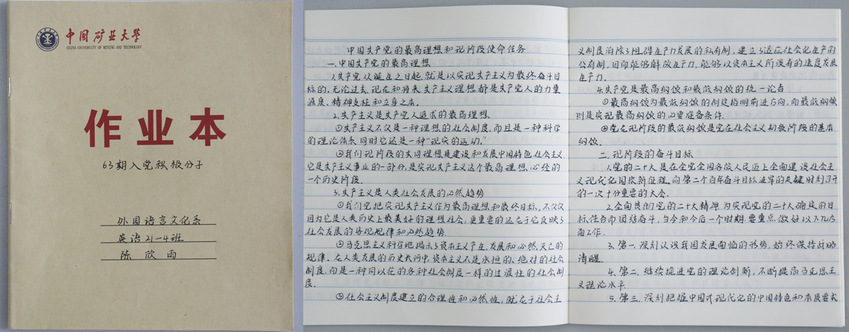 中国矿业大学
CHINA UNIVERSITY OF MINING AND TECHNOLOGY
作业本
63期入党积极分子
外国语言文化系
英语21-4班
陈欣雨
中国共产党的最高理想和现阶段使命任务
一、中国共产党的最高理想
1.共产党从诞生之日起,就是以实现共产主义为最终奋斗目
标的,无论过去、现在和将来,共产主义理想都是共产党人的力量
源泉、精神支柱和立身之本。
2.共产主义是共产党人追求的最高理想
①共产主义不仅是一种理想的社会制度,而且是一种科学
的理论体系,同时它还是一种"现实的运动。"
②我们现阶段的共同理想是建设和发展中国特色社会主义
它是共产主义事业的一部分,是实现共产主义这个最高理想必经的
一个历史阶段。
3.共产主义是人类社会发展的必然趋势
①我们党把实现共产主义作为最高理想和最终目标,不仅仅
因为它是人类历史上最美好的理想社会,更重要的还在于它反映了
社会发展的客观规律和必然趋势。
②马克思主义科学地揭示了资本主义产生、发展和必然灭亡的
规律。在人类发展的历史长河中,资本主义不是永恒的、绝对的社会
制度,而是一种同以往的各种社会制度一样的过渡性的社会制
度。
③社会主义制度建立的合理性和必然性,就在于社会主
义制度消除了阻碍生产力发展的私有制,建立了适应社会化生产的
公有制,因而能够解放生产力,能够以资本主义所没有的速度发展
生产力。
4.共产党是最高纲领和最低纲领的统一论者
①最高纲领为最低纲领的制定指明前进方向,而最低纲领
则是实现最高纲领的必要准备条件。
②党在现阶段的最低纲领是党在社会主义初级阶段的基本
纲领。
二、现阶段的奋斗目标
1.党的二十大是在全党全国各族人民迈上全面建设社会主
义现代化国家新征程,向第二个百年奋斗目标进军的关键时刻召开
的一次十分重要的大会。
2.全面贯彻党的二十大精神,为实现党的二十大确定的目
标任务而团结奋斗,当今和今后一个时期,要重点做好以下几方
面工作。
3.第一,深刻认识我国发展面临的形势,始终保持战略
清醒
4.第二,继续推进党的理论创新,不断提高马克思主
义理论水平
5.第三,深刻把握中国式现代化的中国特色和本质要求